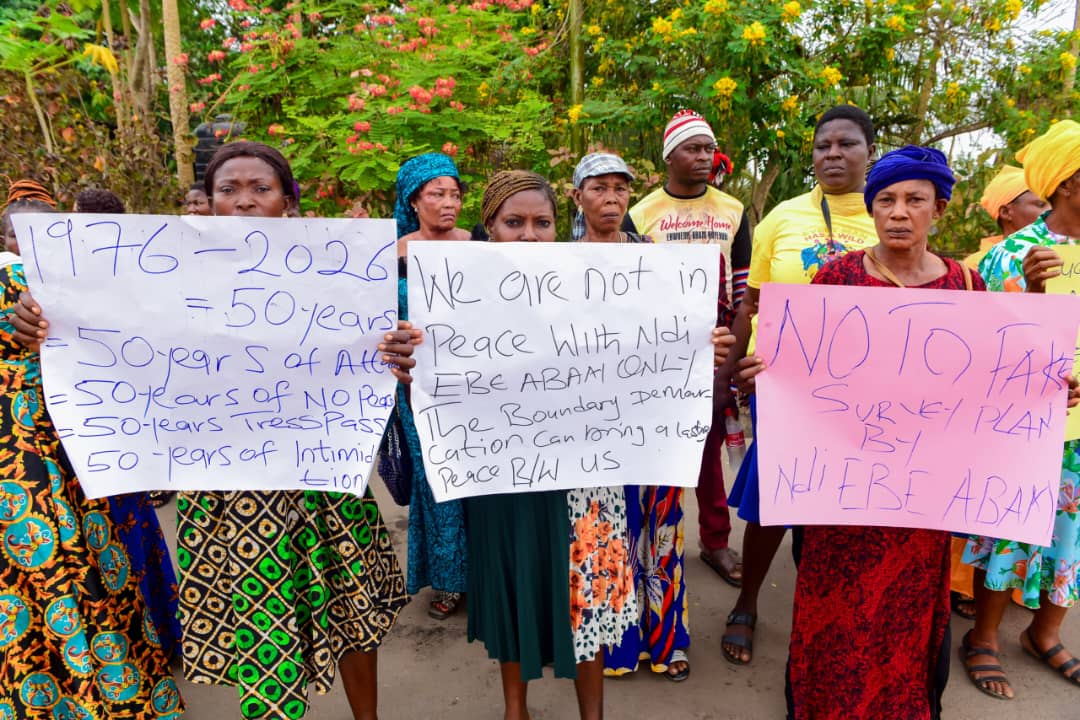 1976 - 2026
= 50 years
= 50-years of Att
= 50-years of No Peac
= 50-years TressPass
50-years of Intimid
tion
We are not in
Peace With Ndi
EBE ABAKI ONLY
The Boundary Demar
cation can bring a
Peace B/W US
NO TO FAKE
SURVEY PLAN
BY
Ndi EBE ABAKI
Welcome Home